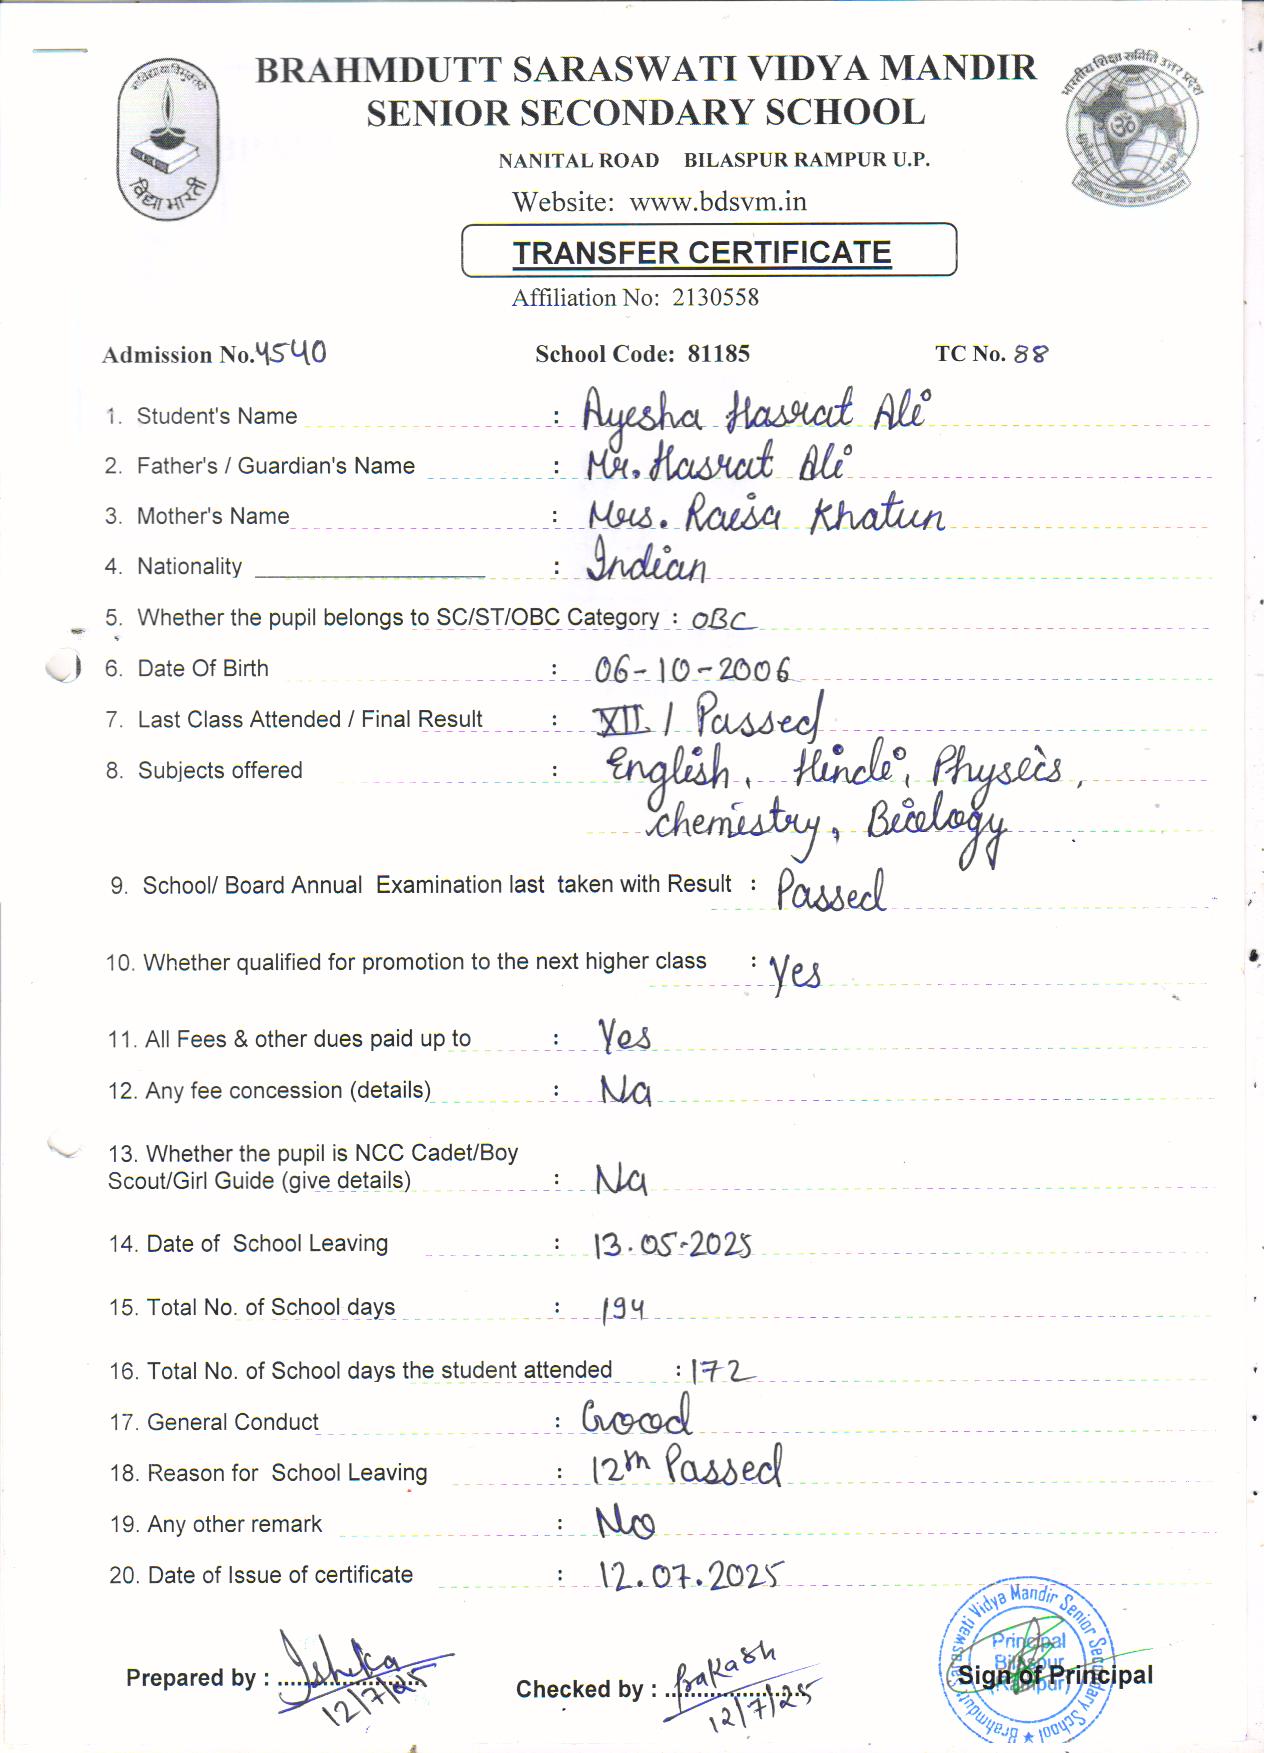 BRAHMDUTT SARASWATI VIDYA MANDIR
SENIOR SECONDARY SCHOOL
NANITAL ROAD BILASPUR RAMPUR U.P.
Website: www.bdsvm.in
विद्या भारती
भारतीय शिक्षा समिति उत्तर प्रदेश
TRANSFER CERTIFICATE
Affiliation No: 2130558
Admission No. 4540 School Code: 81185 TC No. 88
1. Student's Name : Ayesha Hasrat Ali
2. Father's / Guardian's Name : Mr. Hasrat Ali
3. Mother's Name : Mrs. Raisa Khatun
4. Nationality : Indian
5. Whether the pupil belongs to SC/ST/OBC Category : OBC
6. Date Of Birth : 06-10-2006
7. Last Class Attended / Final Result : XII / Passed
8. Subjects offered : English, Hindi, Physics,
chemistry, Biology
9. School/ Board Annual Examination last taken with Result : Passed
10. Whether qualified for promotion to the next higher class : Yes
11. All Fees & other dues paid up to : Yes
12. Any fee concession (details) : Na
13. Whether the pupil is NCC Cadet/Boy
Scout/Girl Guide (give details) : Na
14. Date of School Leaving : 13.05-2025
15. Total No. of School days : 194
16. Total No. of School days the student attended : 172
17. General Conduct : Good
18. Reason for School Leaving : 12th Passed
19. Any other remark : No
20. Date of Issue of certificate : 12.07.2025
Prepared by : Ishika
12/7/25
Checked by : Prakash
12/7/25
Sign of Principal
Principal
Bilaspur
(Rampur)
Brahmdutt Saraswati Vidya Mandir Senior Secondary School